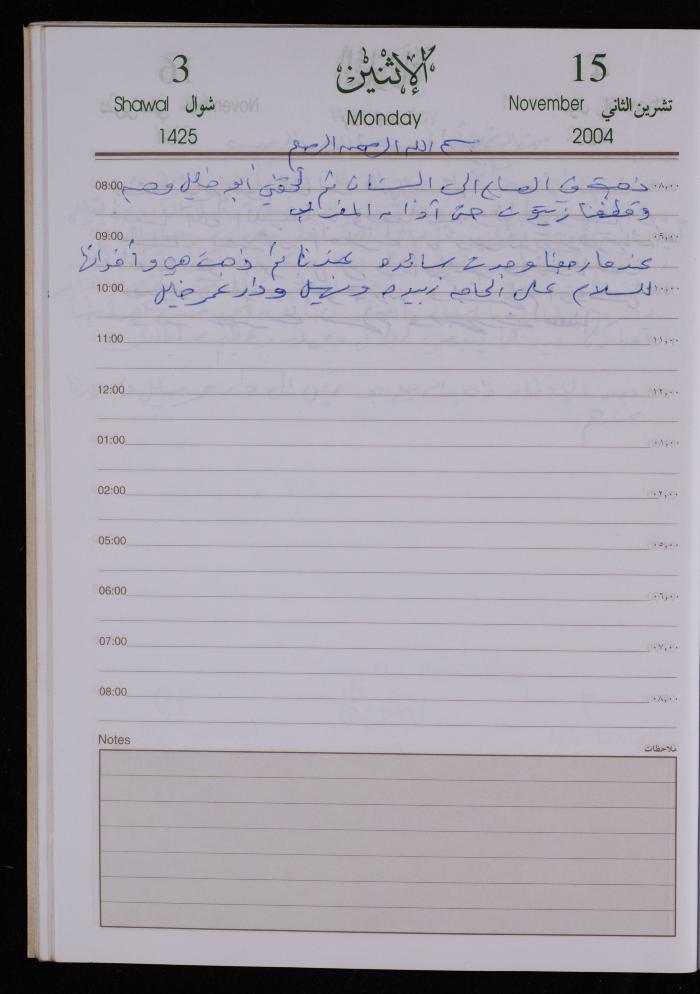 3 الإثنين 15
Shawal شوال Monday November تشرين الثاني
1425 2004
بسم الله الرحمن الرحيم
08:00 ذهبت في الصباح الى البستان ثم لحقني ابو خليل و ٠٨:٠٠
وقطفنا زيتون حتى أذان المغرب
09:00 ٠٩:٠٠
عندما رجعنا وجدت عندنا ثم ذهبت هي و
10:00 للسلام على الحاجه زبيده و ودار عمر خليل ١٠:٠٠
11:00 ١١:٠٠
12:00 ١٢:٠٠
01:00 ٠١:٠٠
02:00 ٠٢:٠٠
05:00 ٠٥:٠٠
06:00 ٠٦:٠٠
07:00 ٠٧:٠٠
08:00 ٠٨:٠٠
Notes ملاحظات